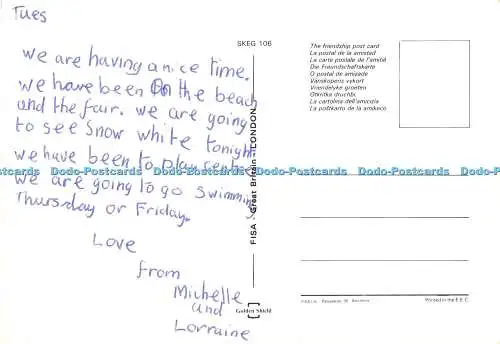 Tues
we are having a nice time.
we have been on the beach
and the fair. we are going
to see snow white tonight.
we have been to play centre
we are going to go swimming
Thursday or Friday.
Love
from
Michelle
and
Lorraine
SKEG 106
FISA - Great Britain - LONDON
Golden Shield
The friendship post card
La postal de la amistad
La carte postale de l'amitié
Die Freundschaftskarte
O postal de amizade
Vänskapens vykort
Vriendelyke groeten
Otkritka druchbi.
La cartolina dell'amicizia
Printed in the E.E.C.
Dodo-Postcards Dodo-Postcards Dodo-Postcards Dodo-Postcards Dodo-Postcards